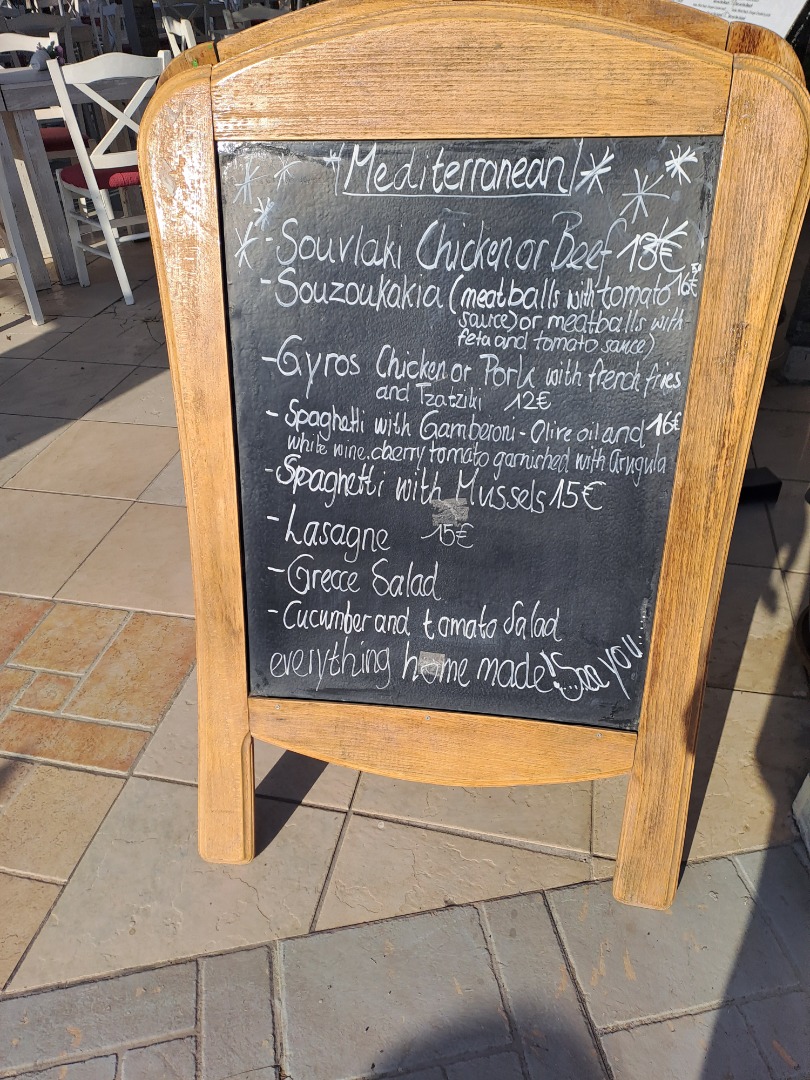 Mediterranean
- Souvlaki Chicken or Beef 13€
- Souzoukakia (meatballs with tomato 16€
sauce) or meatballs with
feta and tomato sauce)
- Gyros Chicken or Pork with french fries
and Tzatziki 12€
- Spaghetti with Gamberoni - Olive oil and 16€
white wine. cherry tomato garnished with Arugula
- Spaghetti with Mussels 15€
- Lasagne 15€
- Grecce Salad
- Cucumber and tomato Salad
everything home made! See you